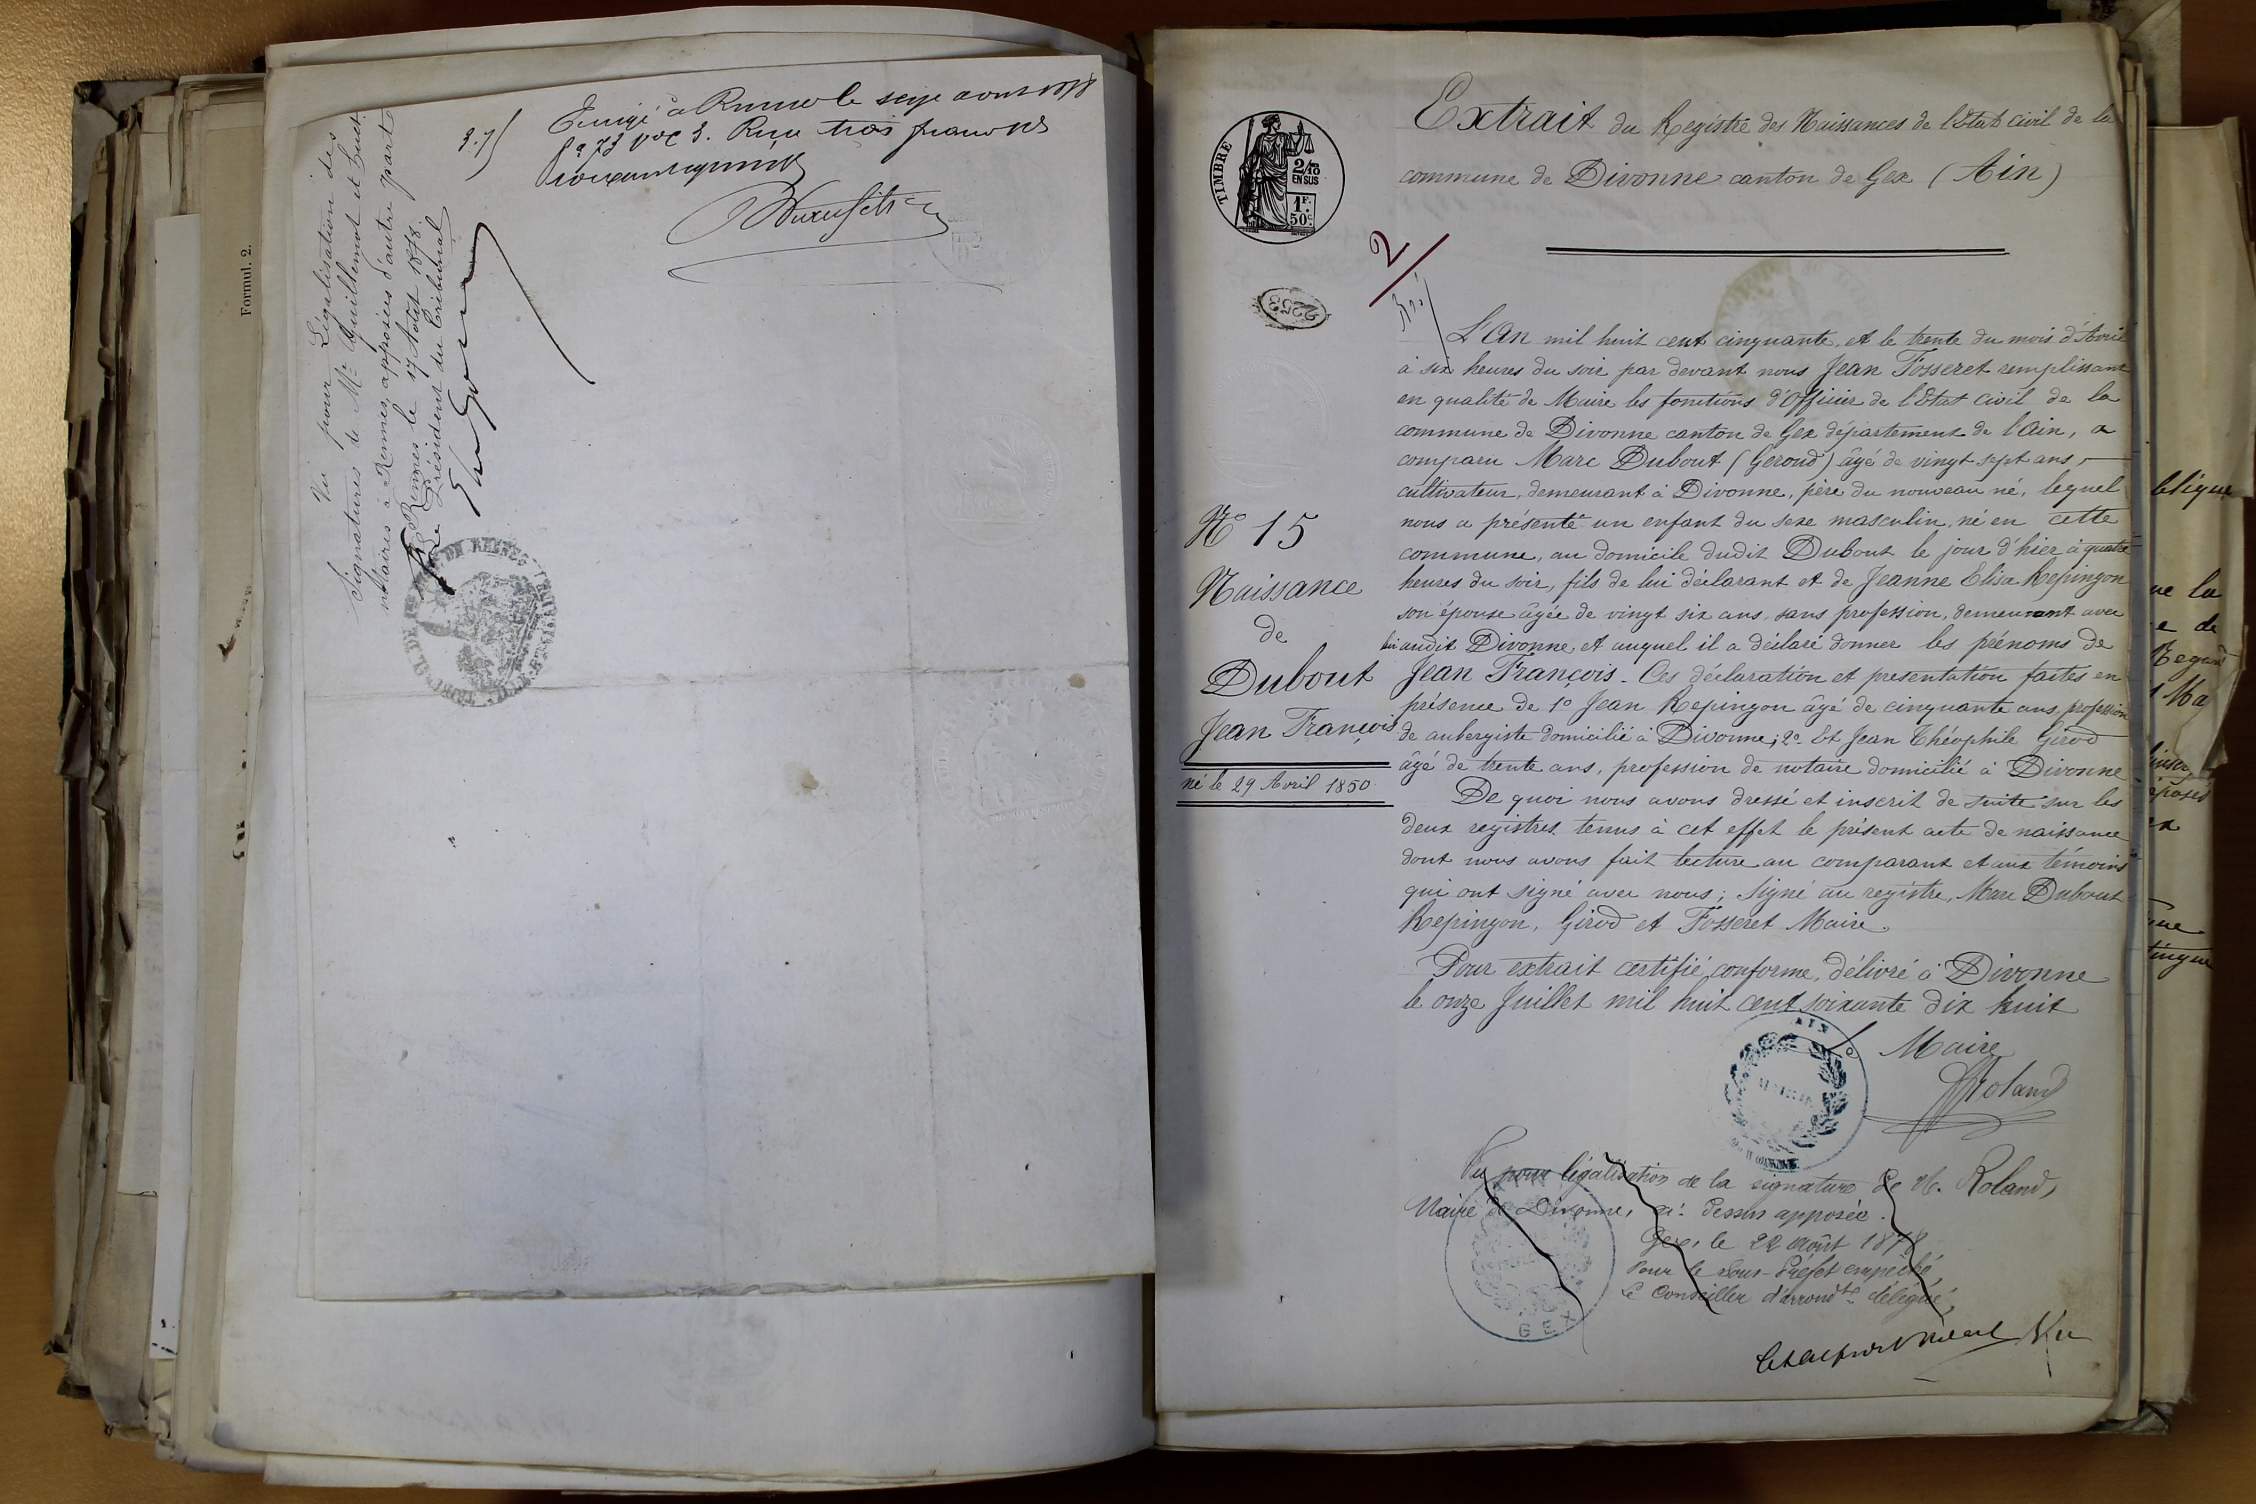 Formul. 2.
3.75
Rennes le seize aout 1878
trois francs
Vu pour Légalisation des
Signatures de Me Guillemot et
notaires à Rennes, apposées d'autre part
Rennes le 17 Août 1878.
Le Président du Tribunal
TIMBRE
2/10
EN SUS
1F.
50c.
2253
2
Extrait du Registre des Naissances de l'Etat civil de la
commune de Divonne canton de Gex (Ain)
L'An mil huit cent cinquante, et le trente du mois d'Avril
à six heures du soir par devant nous Jean Fosseret remplissant
en qualité de Maire les fonctions d'Officier de l'Etat civil de la
commune de Divonne canton de Gex département de l'Ain, a
comparu Marc Dubout (Geroud) âgé de vingt sept ans,
cultivateur, demeurant à Divonne, père du nouveau né, lequel
nous a présenté un enfant du sexe masculin, né en cette
commune, au domicile dudit Dubout le jour d'hier à quatre
heures du soir, fils de lui déclarant et de Jeanne Elisa Repingon
son épouse âgée de vingt six ans, sans profession, demeurant avec
lui audit Divonne, et auquel il a déclaré donner les prénoms de
Jean François. Ces déclaration et presentation faites en
présence de 1° Jean Repingon âgé de cinquante ans, profession
de aubergiste domicilié à Divonne; 2° Et Jean Théophile Girod
âgé de trente ans, profession de notaire domicilié à Divonne
De quoi nous avons dressé et inscrit de suite sur les
deux registres tenus à cet effet le présent acte de naissance
dont nous avons fait lecture au comparant et aux témoins
qui ont signé avec nous; Signé au registre, Marc Dubout
Repingon, Girod et Fosseret Maire.
Pour extrait certifié conforme, délivré à Divonne
le onze Juillet mil huit cent soixante dix huit
Le Maire
Roland
N° 15
Naissance
de
Dubout
Jean François
né le 29 Avril 1850
AIN
Vu pour légalisation de la signature de M. Roland,
Maire de Divonne, ci-dessus apposée.
Gex, le 22 Août 1878
Pour le Sous-Préfet empêché
Le Conseiller d'arrondt délégué,
GEX